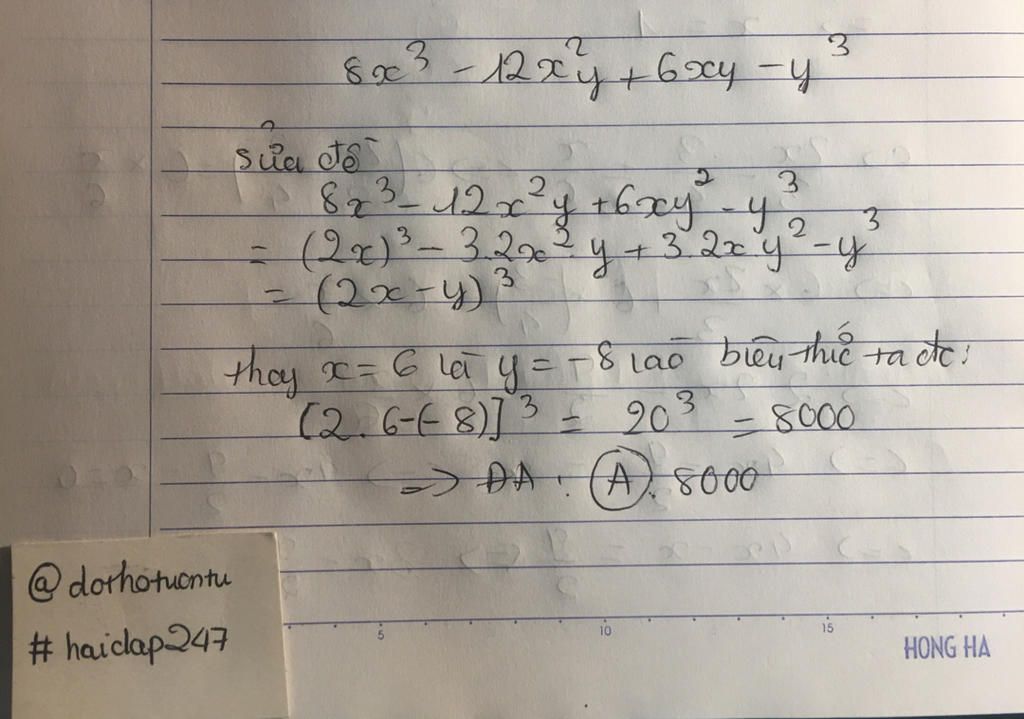 8x³ - 12x²y + 6xy - y³
sửa đề
8x³ - 12x²y + 6xy² - y³
= (2x)³ - 3.2x².y + 3.2x.y² - y³
= (2x - y)³
thay x = 6 và y = -8 vào biểu thức ta đc:
[2.6-(-8)]³ = 20³ = 8000
=> ĐA: A. 8000
@dothotuontu
#haidap247
5 10 15
HONG HA